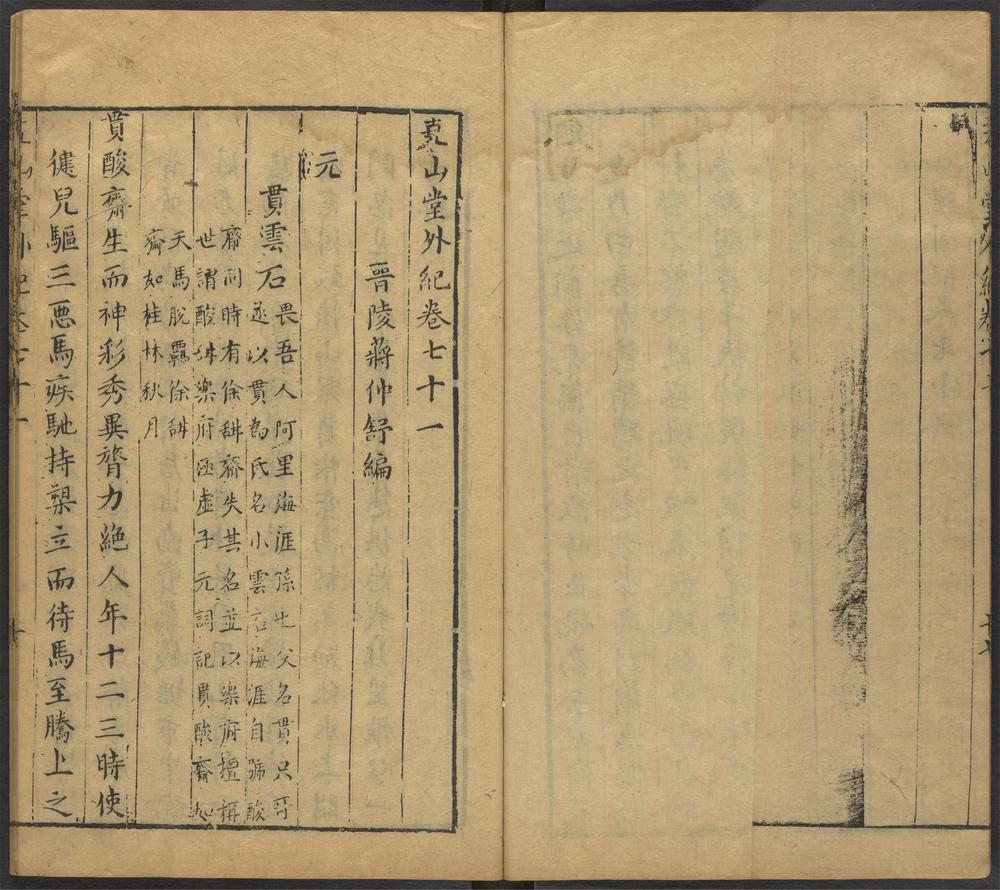 堯山堂外紀卷七十一
晉陵蔣仲舒編
元
貫雲石
畏吾人阿里海涯孫也父名貫只哥
遂以貫為氏名小雲石海涯自號酸
齋同時有徐甜齋失其名並以樂府擅稱
世謂酸甜樂府涵虛子元詞記貫酸齋如
天馬脫羈徐甜
齋如桂林秋月
貫酸齋生而神彩秀異膂力絕人年十二三時使
健兒驅三惡馬疾馳持槊立而待馬至騰上之